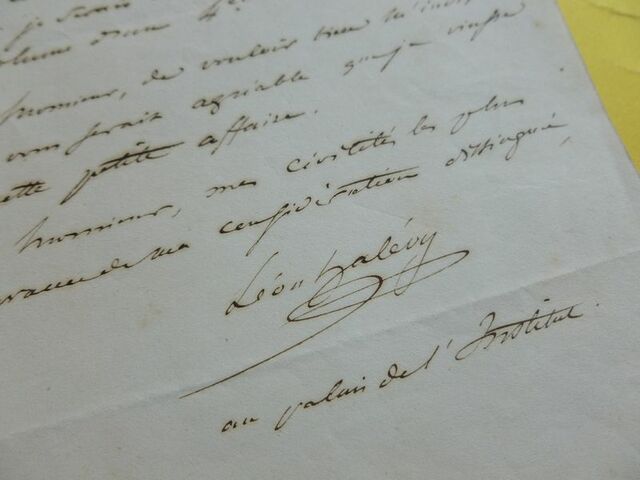 je serais
volume d'une 4e
monsieur, de vouloir bien m'indi
vous serait agréable que je vinsse
cette petite affaire.
monsieur, mes civilités les plus
de ma considération distinguée,
Léon halévy
au palais de l'Institut.